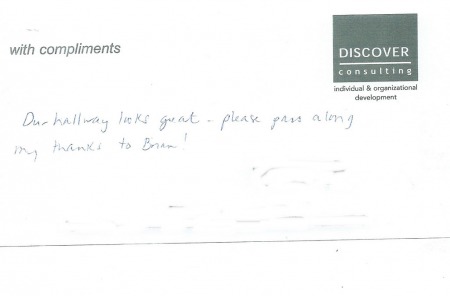 with compliments
DISCOVER
consulting
individual & organizational
development
Our hallway looks great - please pass along
my thanks to Brian!